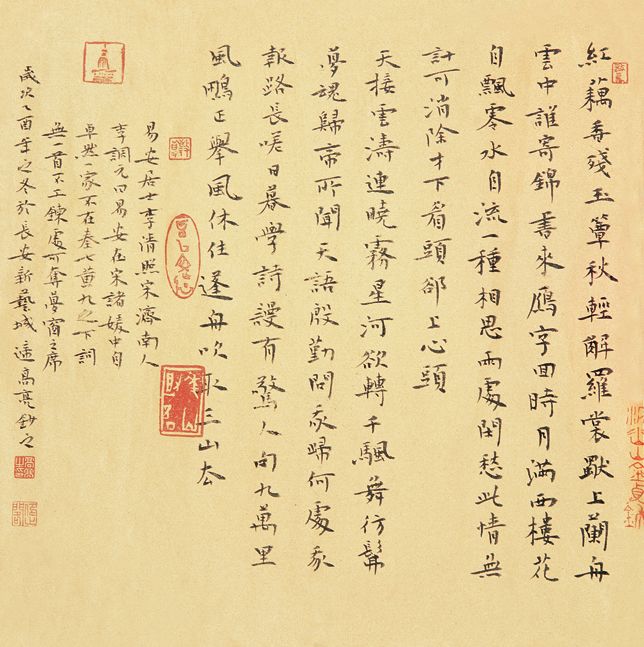 紅藕香殘玉簟秋輕解羅裳獨上蘭舟
雲中誰寄錦書來雁字回時月滿西樓花
自飄零水自流一種相思兩處閒愁此情無
計可消除才下眉頭卻上心頭
天接雲濤連曉霧星河欲轉千颿舞彷髴
夢魂歸帝所聞天語殷勤問我歸何處我
報路長嗟日暮學詩謾有驚人句九萬里
風鵬正舉風休住蓬舟吹取三山去
易安居士李清照宋濟南人
李調元曰易安在宋諸媛中自
卓然一家不在秦七黃九之下詞
無一首不工鍊處可奪夢窗之席
歲次乙酉年之冬於長安新藝城高亮鈔之